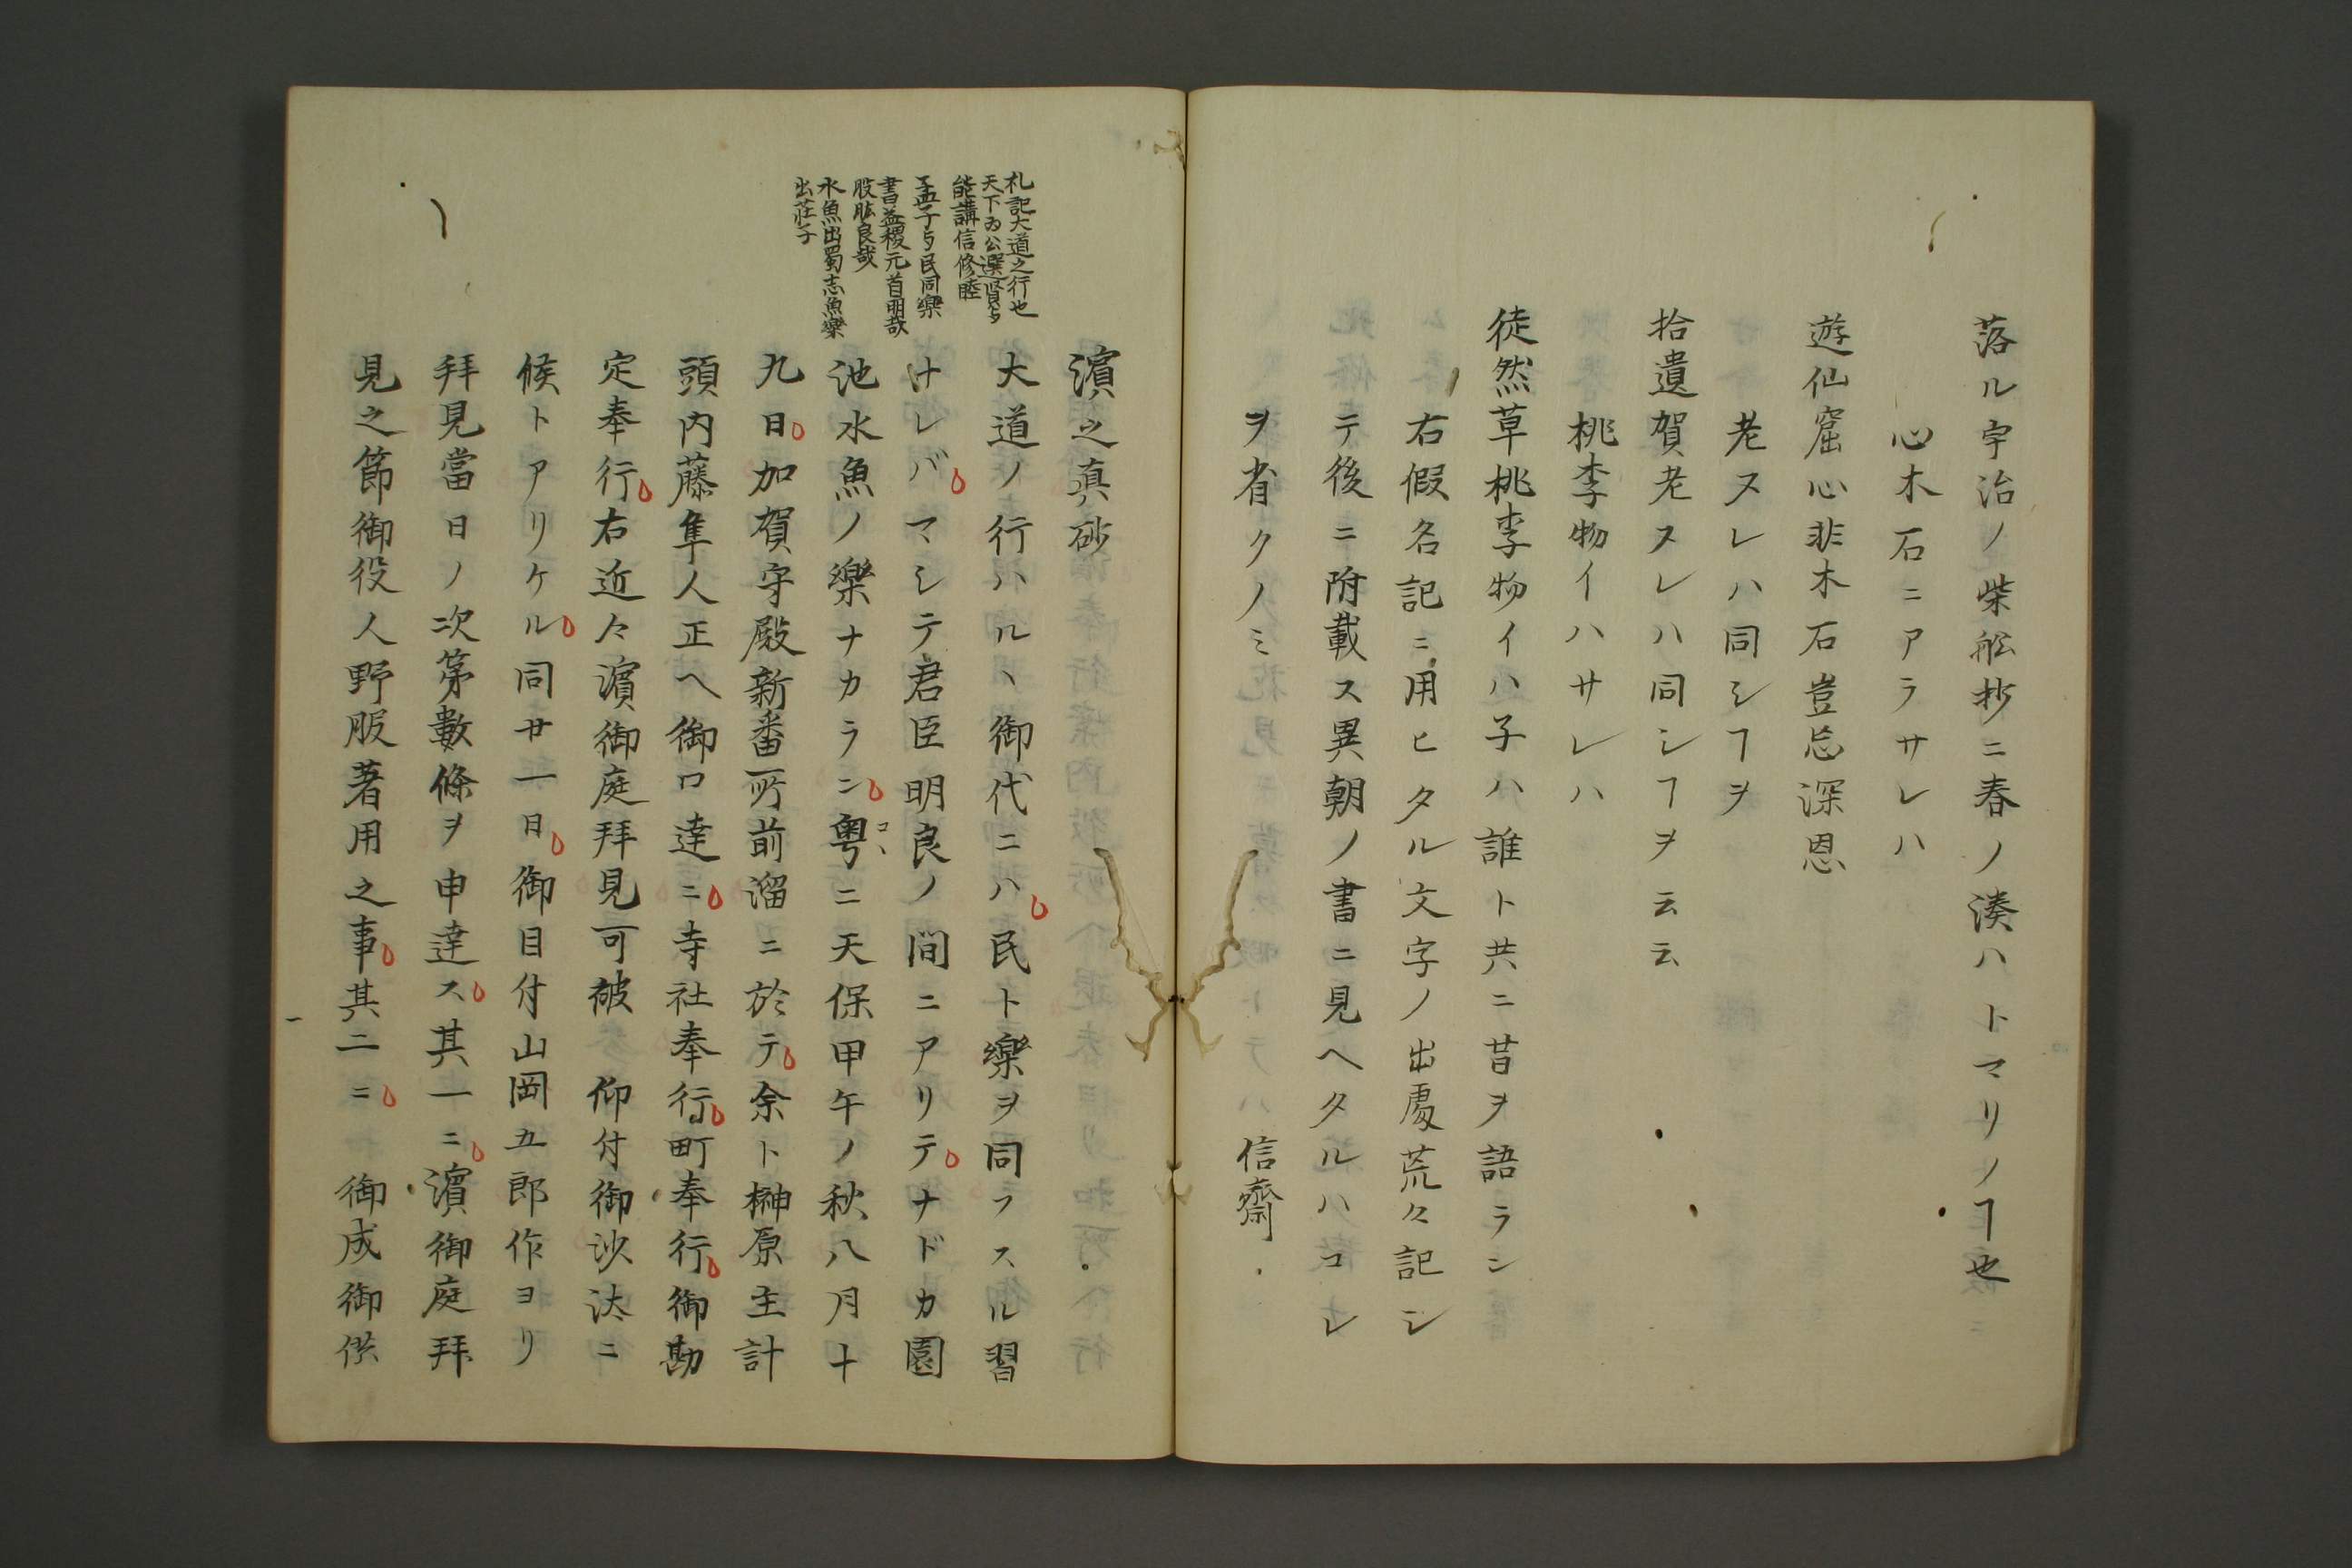 落ル宇治ノ柴舩抄ニ春ノ湊ハトマリノヿ也
心木石ニアラサレハ
遊仙窟心非木石豈忘深恩
老ヌレハ同シヿヲ
拾遺賀老ヌレハ同シヿヲ云云
桃李物イハサレハ
徒然草桃李物イハ子ハ誰ト共ニ昔ヲ語ラシ
右假名記ニ用ヒタル文字ノ出處荒々記シ
テ後ニ附載ス異朝ノ書ニ見ヘタルハコレ
ヲ省クノミ 信齋
札記大道之行也
天下為公選賢与
能講信修睦
孟子与民同樂
書益稷元首明哉
股肱良哉
水魚出蜀志魚樂
出莊子
濵之真砂
大道ノ行ハルヽ御代ニハ民ト樂ヲ同フスル習
ケレバマシテ君臣明良ノ間ニアリテナドカ園
池水魚ノ樂ナカラン粤ニ天保甲午ノ秋八月十
コヽ
九日加賀守殿新番所前溜ニ於テ余ト榊原主計
頭内藤隼人正ヘ御口達ニ寺社奉行町奉行御勘
定奉行右近々濵御庭拜見可被 仰付御沙汰ニ
候トアリケル同廿一日御目付山岡五郎作ヨリ
拜見當日ノ次第數條ヲ申達ス其一ニ濵御庭拜
見之節御役人野服著用之事其二ニ 御成御供